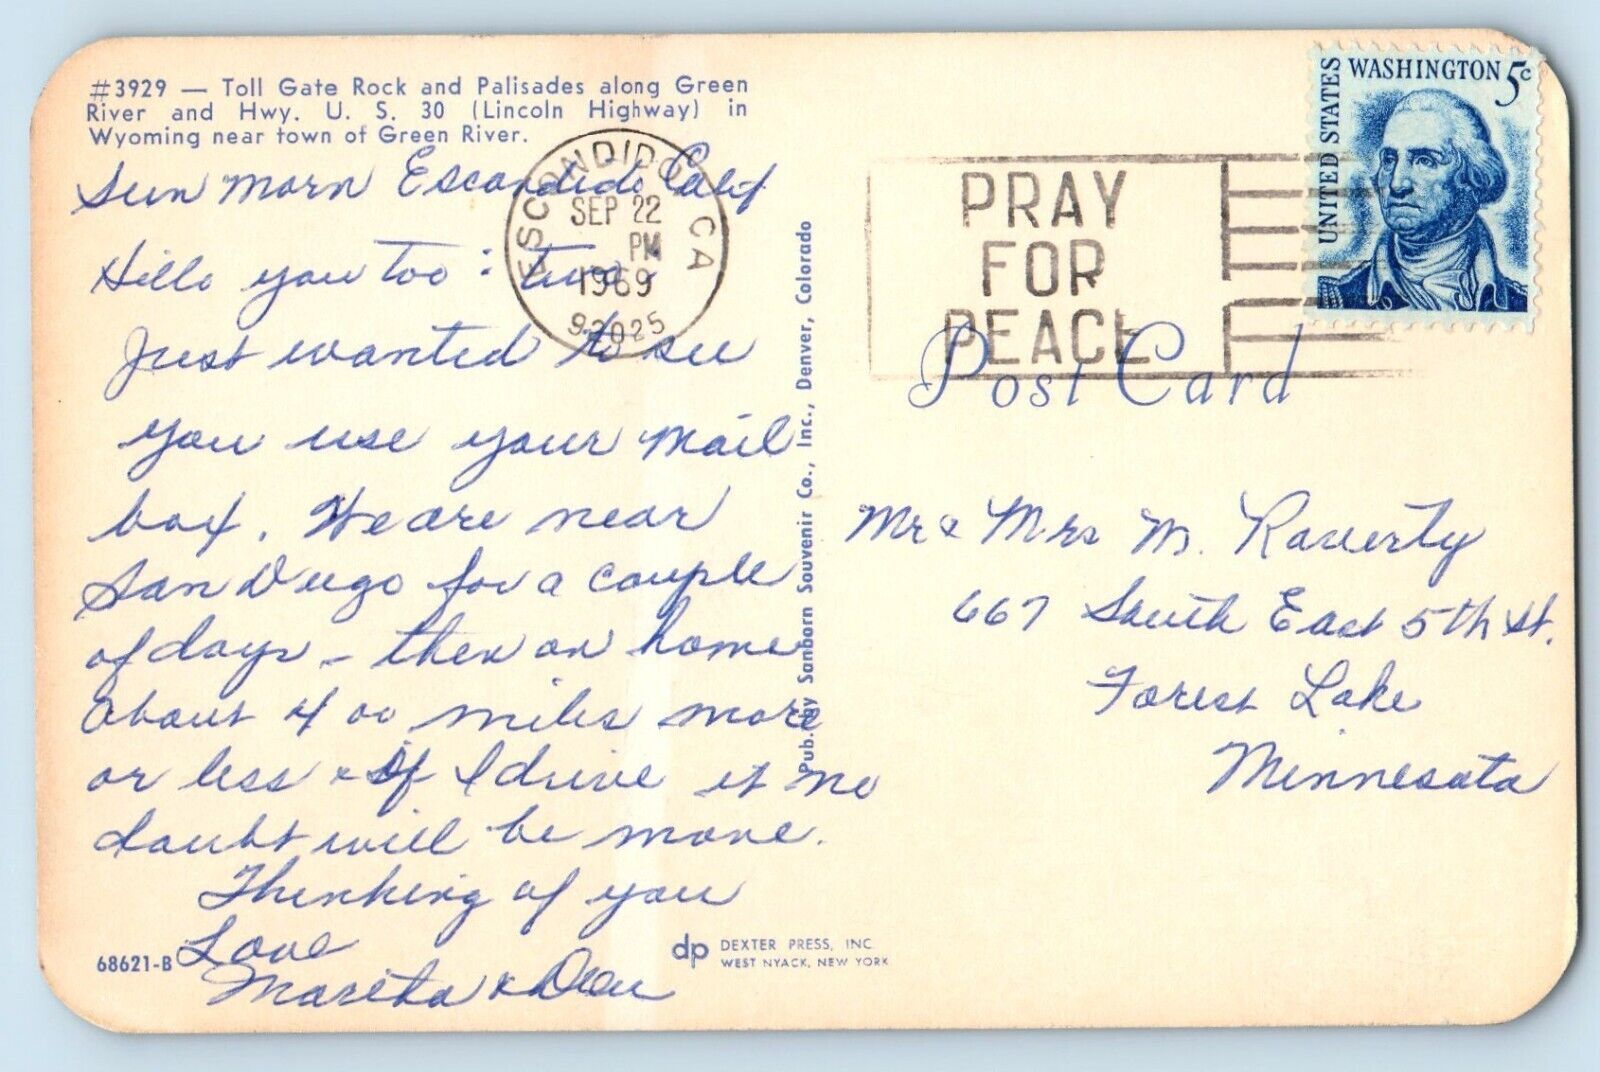 #3929 — Toll Gate Rock and Palisades along Green
River and Hwy. U. S. 30 (Lincoln Highway) in
Wyoming near town of Green River.
Sun Morn Escondido Calif
Hello you too : two
Just wanted to see
you use your mail
box. We are near
San Diego for a couple
of days – then on home
about 400 miles more
or less & if I drive it no
doubt will be more.
Thinking of you
Love
Maritta & Dean
68621-B
dp DEXTER PRESS, INC
WEST NYACK, NEW YORK
Pub. by Sanborn Souvenir Co., Inc., Denver, Colorado
ESCONDIDO, CA
SEP 22
PM
1969
92025
PRAY
FOR
PEACE
UNITED STATES
WASHINGTON 5c
Post Card
Mr & Mrs M. Raverty
667 South East 5th St.
Forest Lake
Minnesota